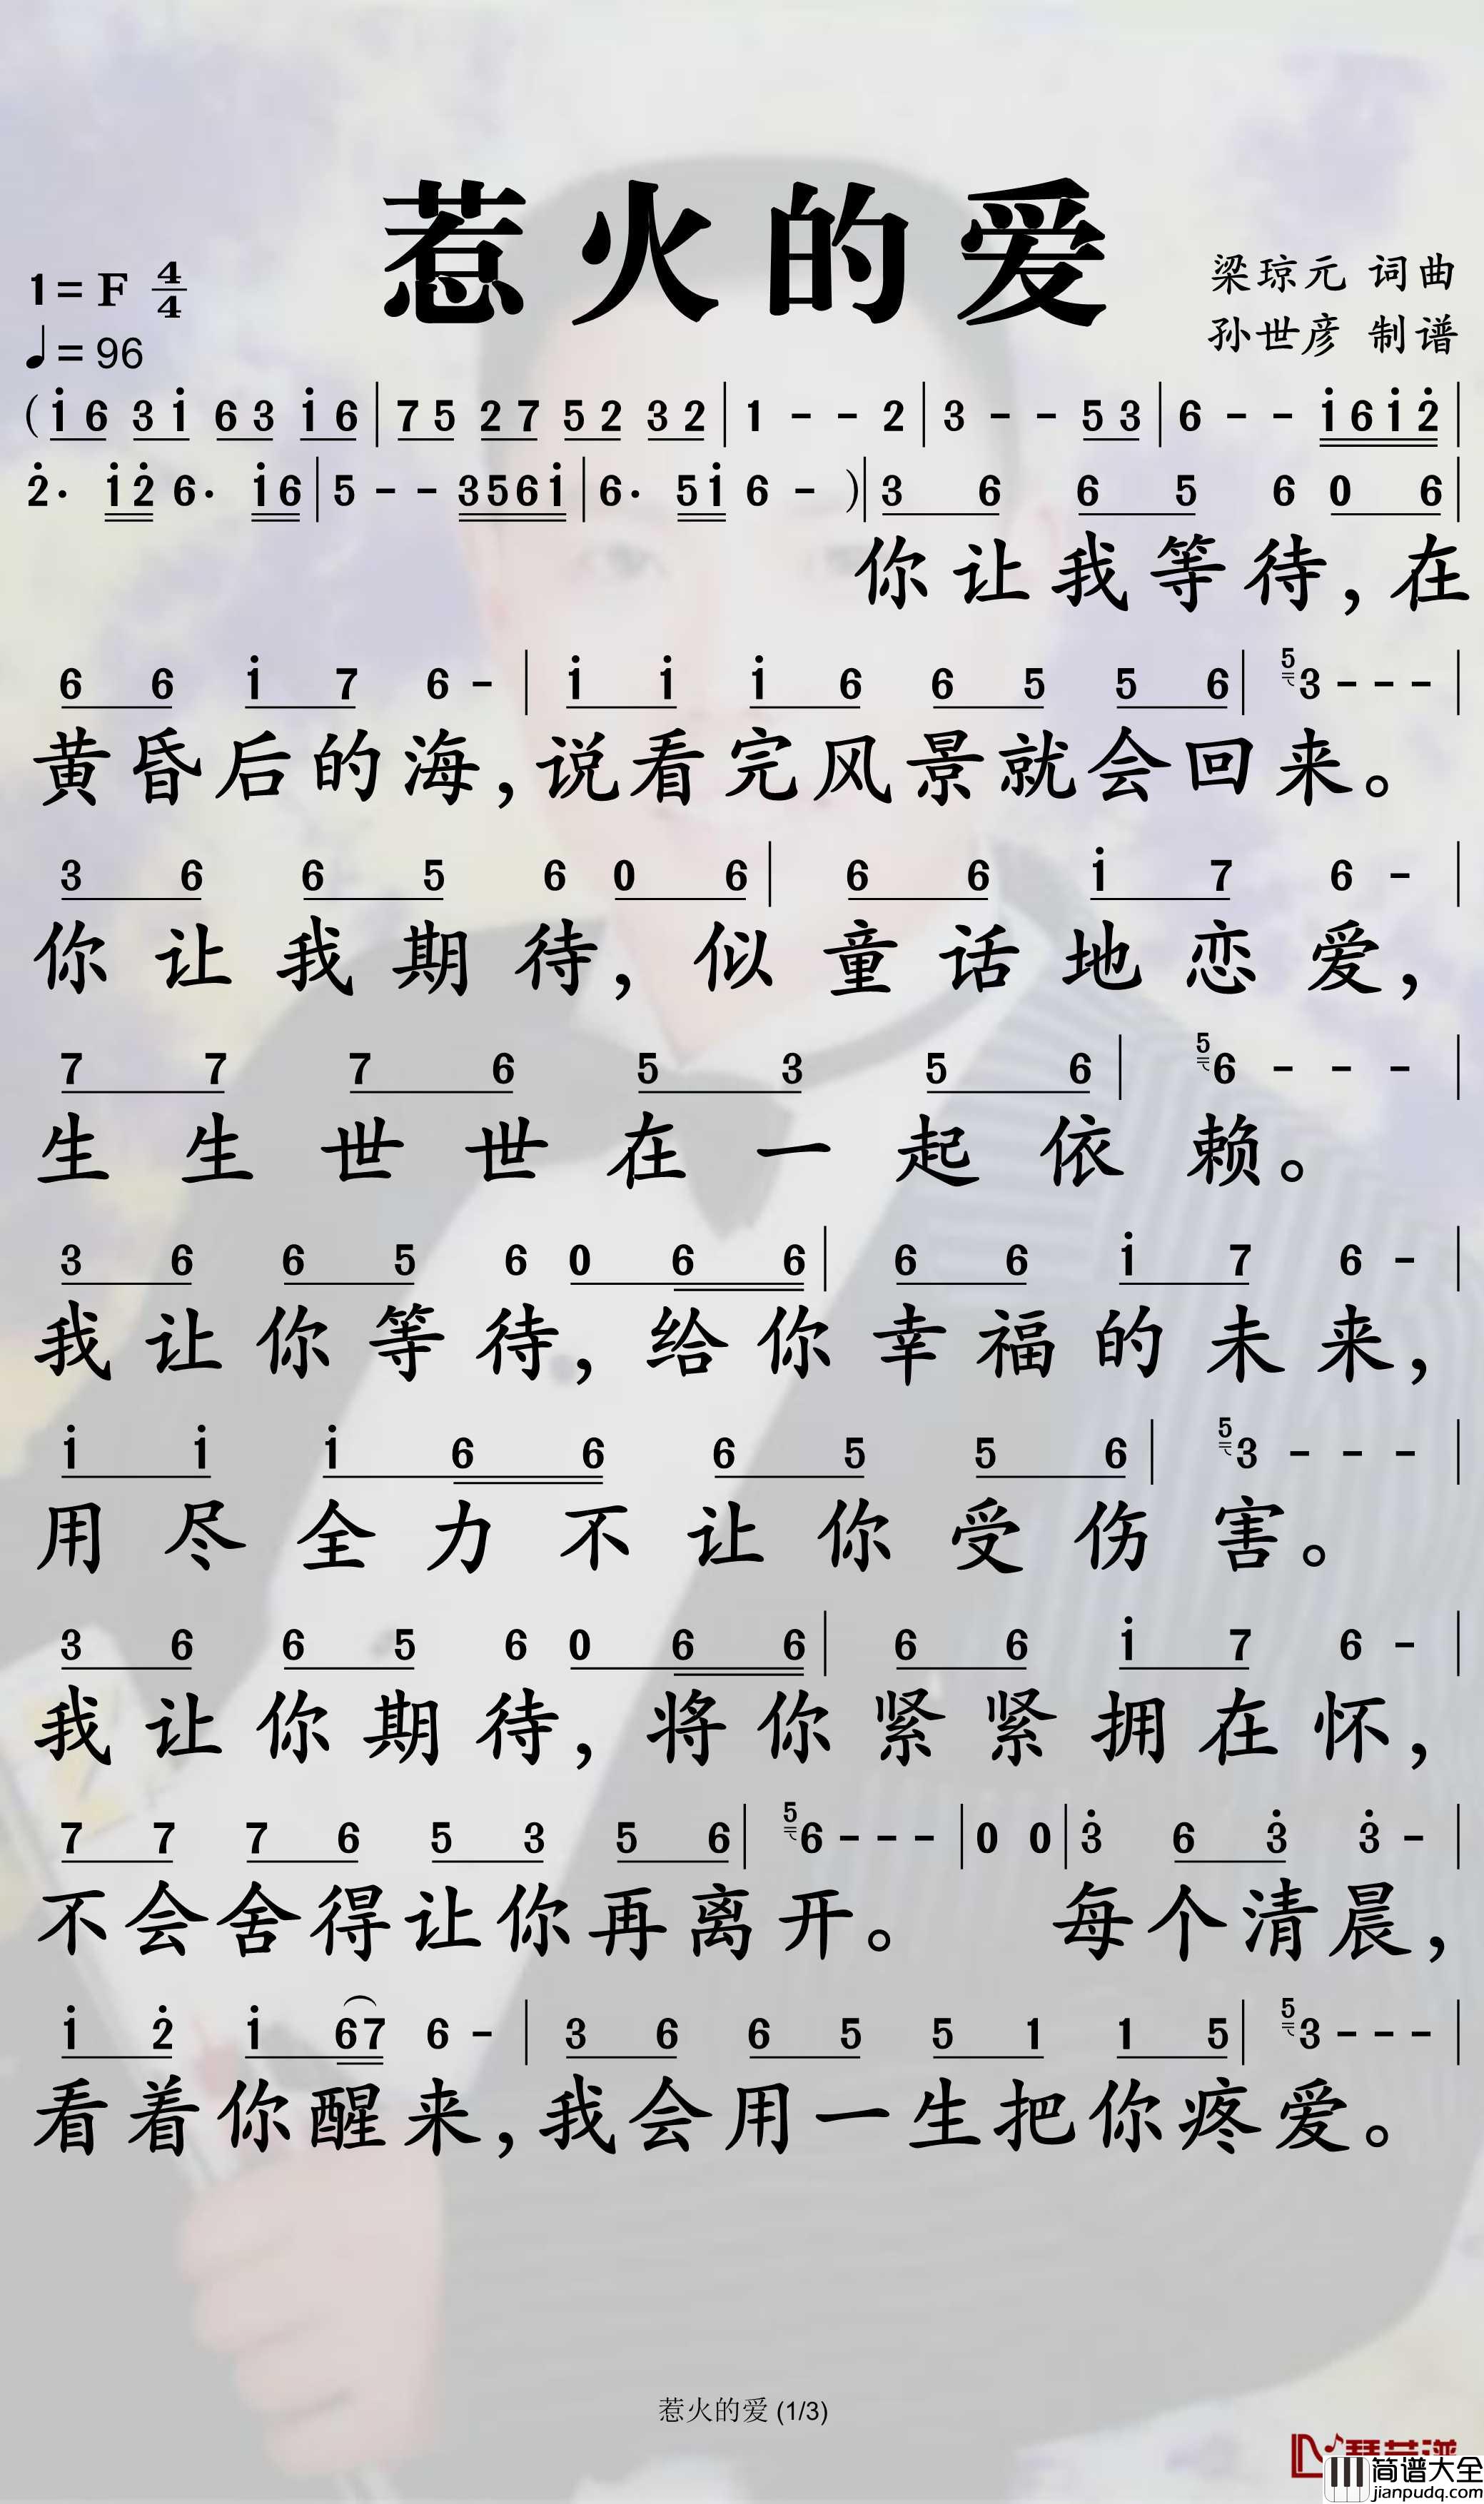 惹火的爱
1=F 4/4
♩=96
梁琼元 词曲
孙世彦 制谱
(i̇ 6 3 i̇ 6 3 i̇ 6 | 7 5 2 7 5 2 3 2 | 1 - - 2 | 3 - - 5 3 | 6 - - i̇ 6 i̇ 2̇ |
2̇· i̇ 2̇ 6· i̇ 6 | 5 - - 3 5 6 i̇ | 6· 5 i̇ 6 - ) | 3 6 6 5 6 0 6 |
你让我等待,在
6 6 i̇ 7 6 - | i̇ i̇ i̇ 6 6 5 5 6 | 5 3 - - - |
黄昏后的海,说看完风景就会回来。
3 6 6 5 6 0 6 | 6 6 i̇ 7 6 - |
你让我期待,似童话地恋爱,
7 7 7 6 5 3 5 6 | 5 6 - - - |
生生世世在一起依赖。
3 6 6 5 6 0 6 6 | 6 6 i̇ 7 6 - |
我让你等待,给你幸福的未来,
i̇ i̇ i̇ 6 6 6 5 5 6 | 5 3 - - - |
用尽全力不让你受伤害。
3 6 6 5 6 0 6 6 | 6 6 i̇ 7 6 - |
我让你期待,将你紧紧拥在怀,
7 7 7 6 5 3 5 6 | 5 6 - - - | 0 0 | 3̇ 6 3̇ 3̇ - |
不会舍得让你再离开。 每个清晨,
i̇ 2̇ i̇ 6 7 6 - | 3 6 6 5 5 1 1 5 | 5 3 - - - |
看着你醒来,我会用一生把你疼爱。
惹火的爱 (1/3)
简谱大全
jianpudq.com